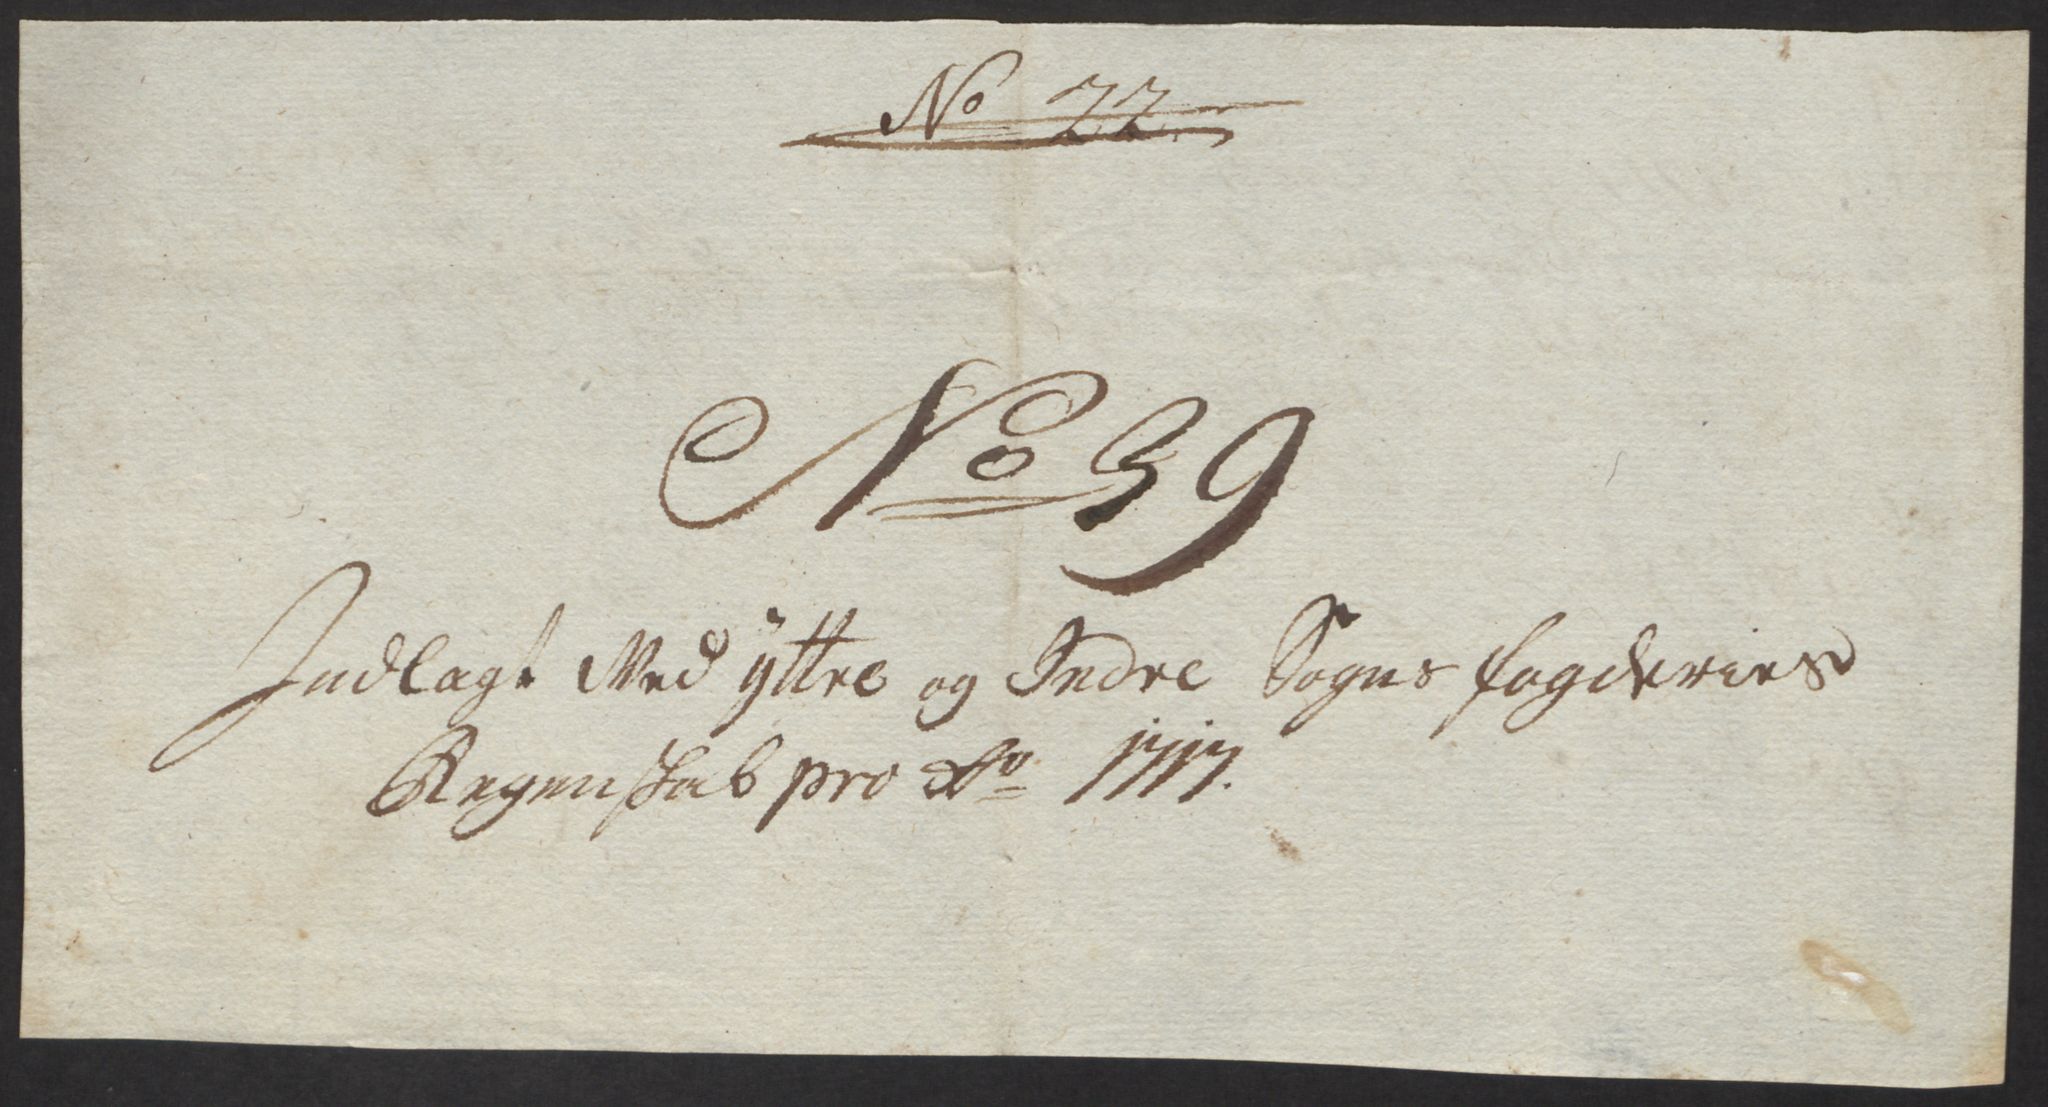 No 22
No 39
Indlagt Med ÿttre og Indre Sogns fogderies
Regenskab pro Ao 1717.